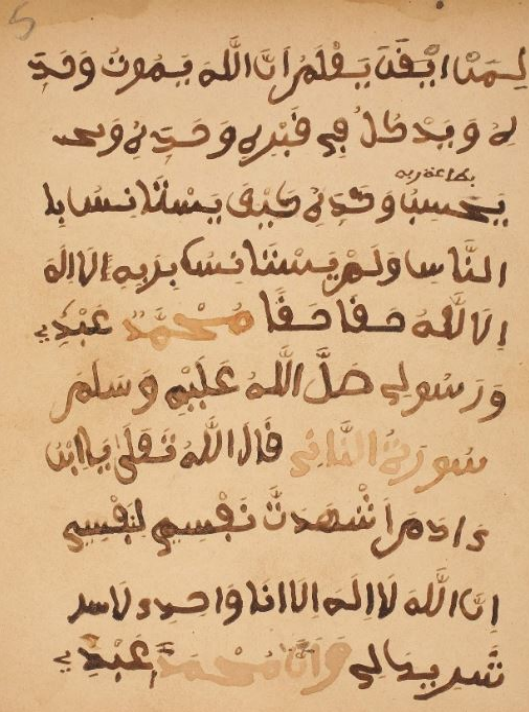 لِمَنْ ايْقَنَ يَعْلَمُ اَنَّ اللَّهَ يَمُوتُ وَحْدَ
لهُ وَيَدْخُلُ فِي قَبْرِهِ وَحْدِهُ وَ
بطاعة ربه
يَحْسِبُ وَحْدِهُ كَيْفَ يَسْتَانِسُ بِا
النَّاسِ وَلَمْ يَسْتَانِسْ بِرَبِهِ الَا الَهَ
اِلَا اللَّهُ حَقًا حَقًا مُحْمَّدٌ عَبْدِي
وَرَسُولِي صَلَّ اللَّهُ عَلَيْهِ وَسَلَمَ
سُورَةُ الثَّانِي قَالَ اللَّهُ تَعَلَى يَا ابْنَ
ءَادَمَ اَشْهَدتُّ نَفْسِي لِنَفْسِي
اِنَّ اللَّهَ لَا الَهَ اِلَا انَا وَاحِدِي لَا
شَرِيكَ لِي وَاَنَّ مُحْمَدَ عَبْدِي